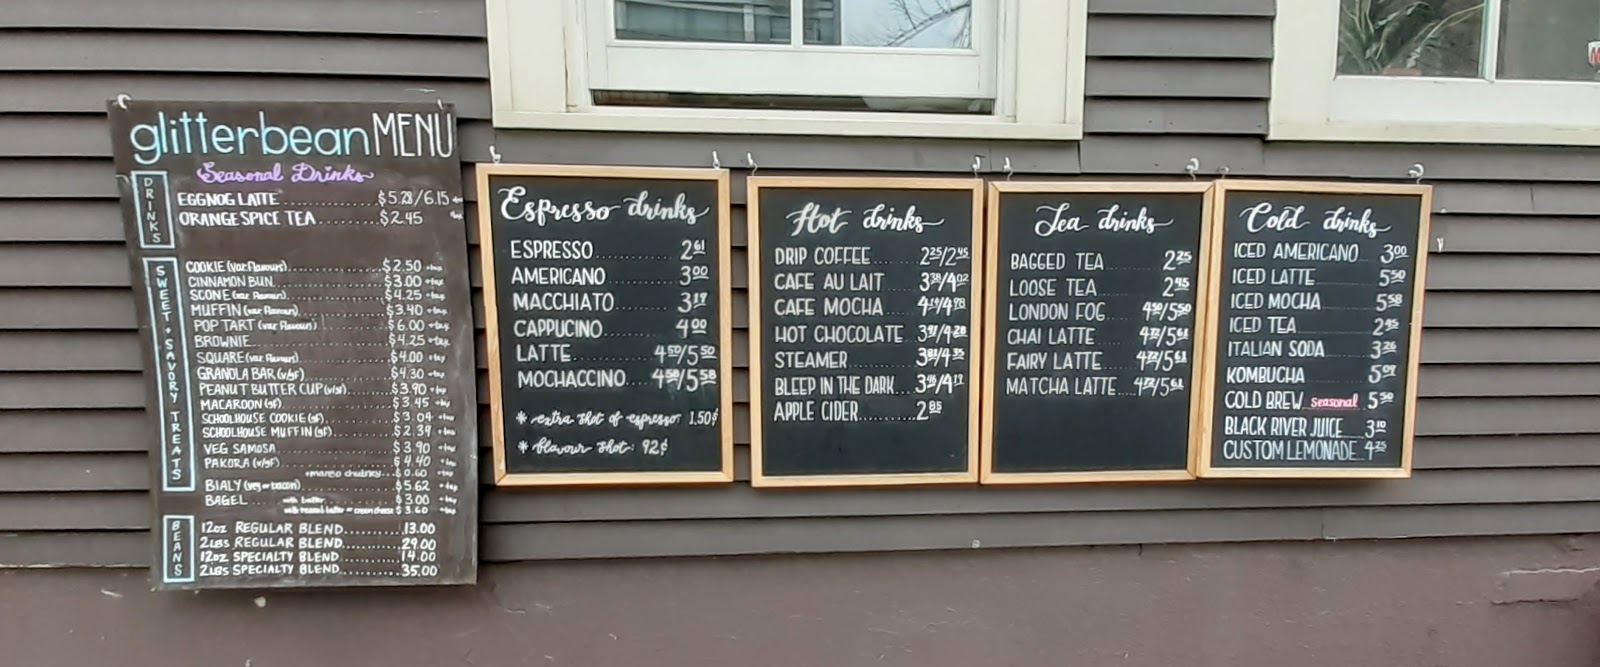 glitterbean MENU
Seasonal Drinks
DRINKS
EGGNOG LATTE $5.28/6.15
ORANGE SPICE TEA $2.45
SWEET + SAVORY TREATS
COOKIE (var. flavours) $2.50 +tax
CINNAMON BUN $3.00 +tax
SCONE (var. flavours) $4.25 +tax
MUFFIN (var. flavours) $3.40 +tax
POP TART (var. flavours) $6.00 +tax
BROWNIE $4.25 +tax
SQUARE (var. flavours) $4.00 +tax
GRANOLA BAR (v/gf) $4.30 +tax
PEANUT BUTTER CUP (v/gf) $3.90 +tax
MACAROON (gf) $3.45 +tax
SCHOOLHOUSE COOKIE (gf) $3.04 +tax
SCHOOLHOUSE MUFFIN (gf) $2.39 +tax
VEG SAMOSA $3.90 +tax
PAKORA (v/gf) $4.40 +tax
+mango chutney $0.60 +tax
BIALY (veg or bacon) $5.62 +tax
BAGEL with butter $3.00 +tax
with peanut butter or cream cheese $3.60 +tax
BEANS
12oz REGULAR BLEND 13.00
2LBS REGULAR BLEND 29.00
12oz SPECIALTY BLEND 14.00
2LBS SPECIALTY BLEND 35.00
Espresso drinks
ESPRESSO 2.61
AMERICANO 3.00
MACCHIATO 3.17
CAPPUCINO 4.00
LATTE 4.50/5.50
MOCHACCINO 4.58/5.58
* extra shot of espresso: 1.50¢
* flavour shot: 92¢
Hot drinks
DRIP COFFEE 2.25/2.45
CAFE AU LAIT 3.38/4.02
CAFE MOCHA 4.19/4.98
HOT CHOCOLATE 3.91/4.28
STEAMER 3.81/4.35
BLEEP IN THE DARK 3.96/4.17
APPLE CIDER 2.85
Tea drinks
BAGGED TEA 2.25
LOOSE TEA 2.45
LONDON FOG 4.50/5.50
CHAI LATTE 4.72/5.61
FAIRY LATTE 4.72/5.61
MATCHA LATTE 4.72/5.61
Cold drinks
ICED AMERICANO 3.00
ICED LATTE 5.50
ICED MOCHA 5.58
ICED TEA 2.95
ITALIAN SODA 3.26
KOMBUCHA 5.09
COLD BREW seasonal 5.50
BLACK RIVER JUICE 3.10
CUSTOM LEMONADE 4.25